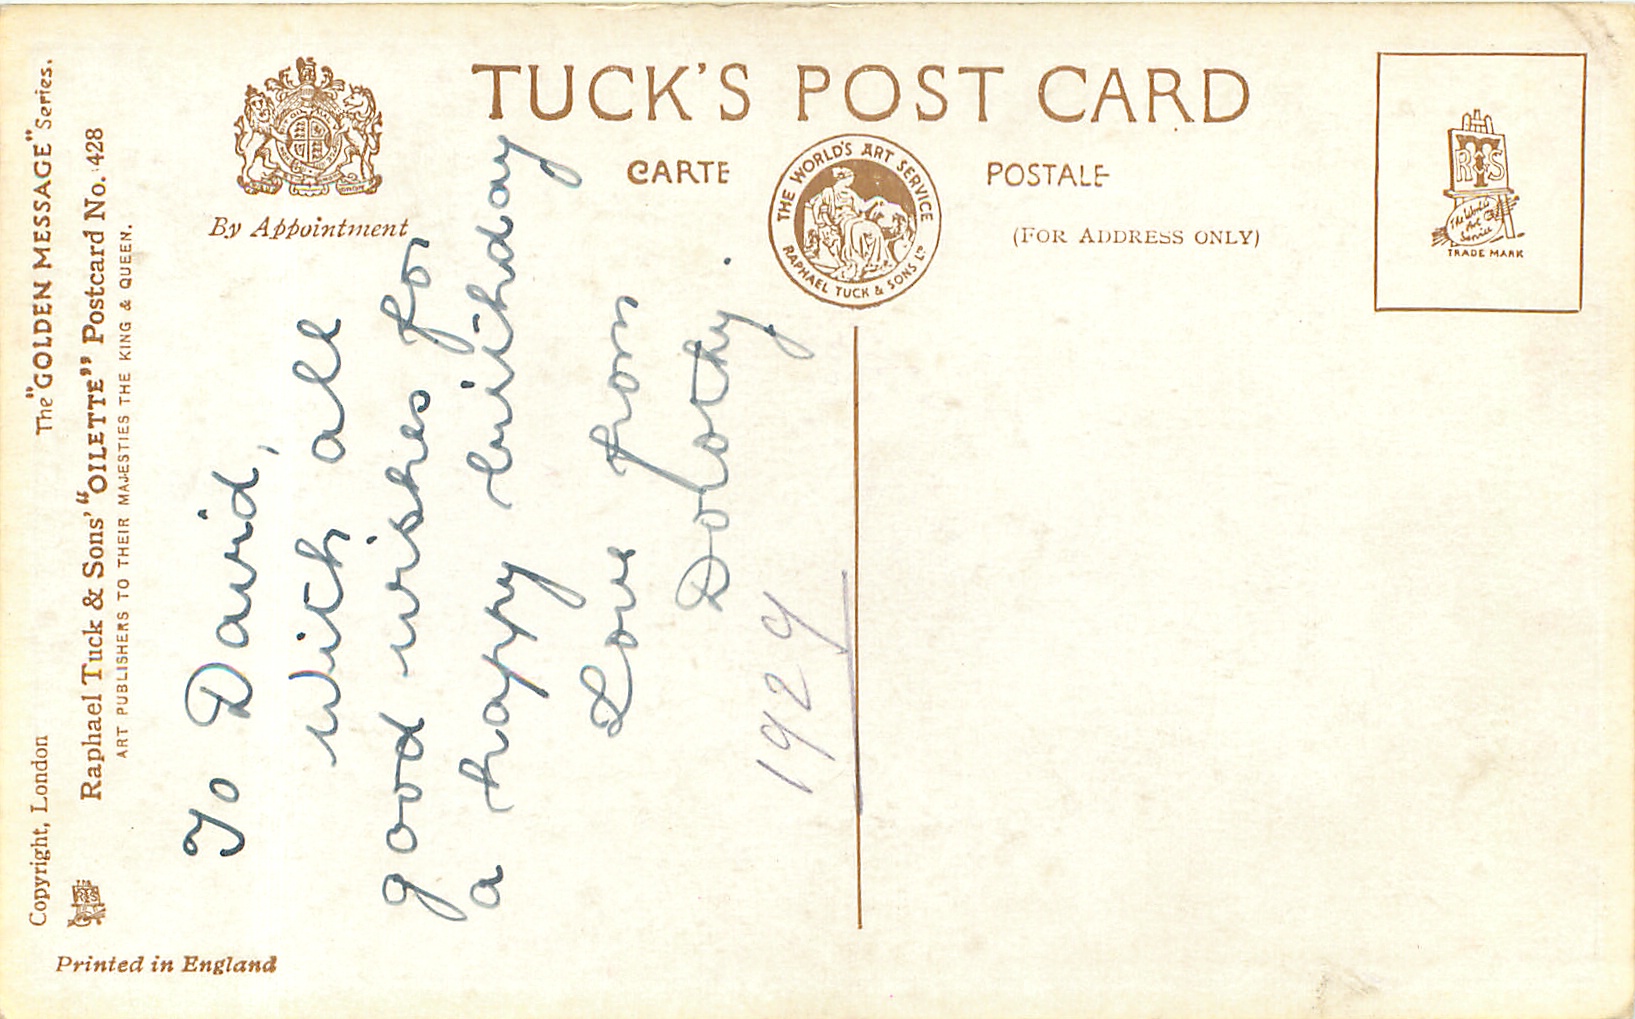 TUCK'S POST CARD
CARTE POSTALE
(FOR ADDRESS ONLY)
By Appointment
THE WORLD'S ART SERVICE
RAPHAEL TUCK & SONS LTD
RTS
The World's
Art
Service
TRADE MARK
The "GOLDEN MESSAGE" Series.
Copyright, London
Raphael Tuck & Sons' "OILETTE" Postcard No. 428
ART PUBLISHERS TO THEIR MAJESTIES THE KING & QUEEN.
RTS
Printed in England
To David,
With all
good wishes for
a happy birthday
Love from
Dorothy.
1929